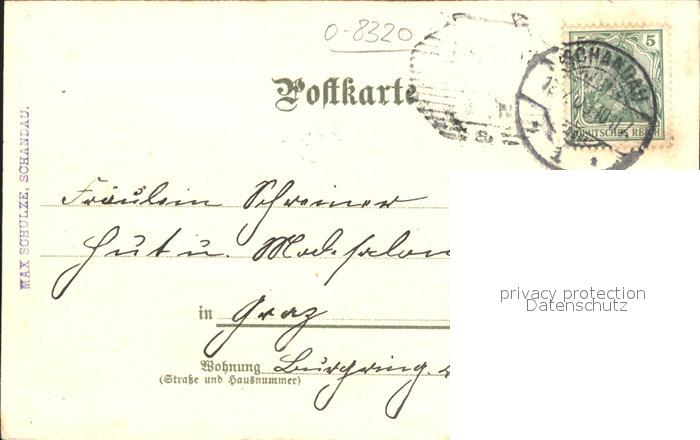 0-8320
5 5
SCHANDAU
DEUTSCHES REICH
Postkarte
MAX SCHULZE, SCHANDAU.
Fräulein Schreiner
Hut u. Mod. salon
in Graz
Wohnung Burgring
(Straße und Hausnummer)
privacy protection
Datenschutz